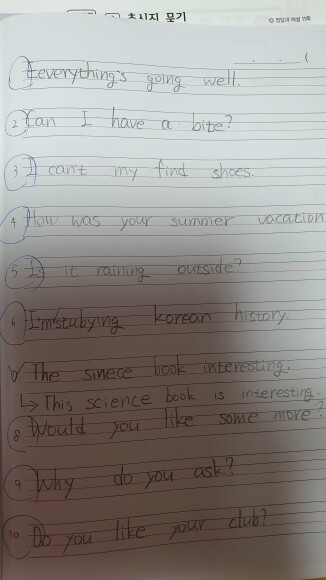 추신지 묶기
정답과 해설 11쪽
1 Eeverything's going well.
2 Can I have a bite?
3 I can't my find shoes.
4 How was your summer vacation
5 Is it raining outside?
6 I'm stubying korean history.
The sinece book interesting.
↳ This science book is interesting.
8 Would you like some more?
9 Why do you ask?
10 Do you like your club?